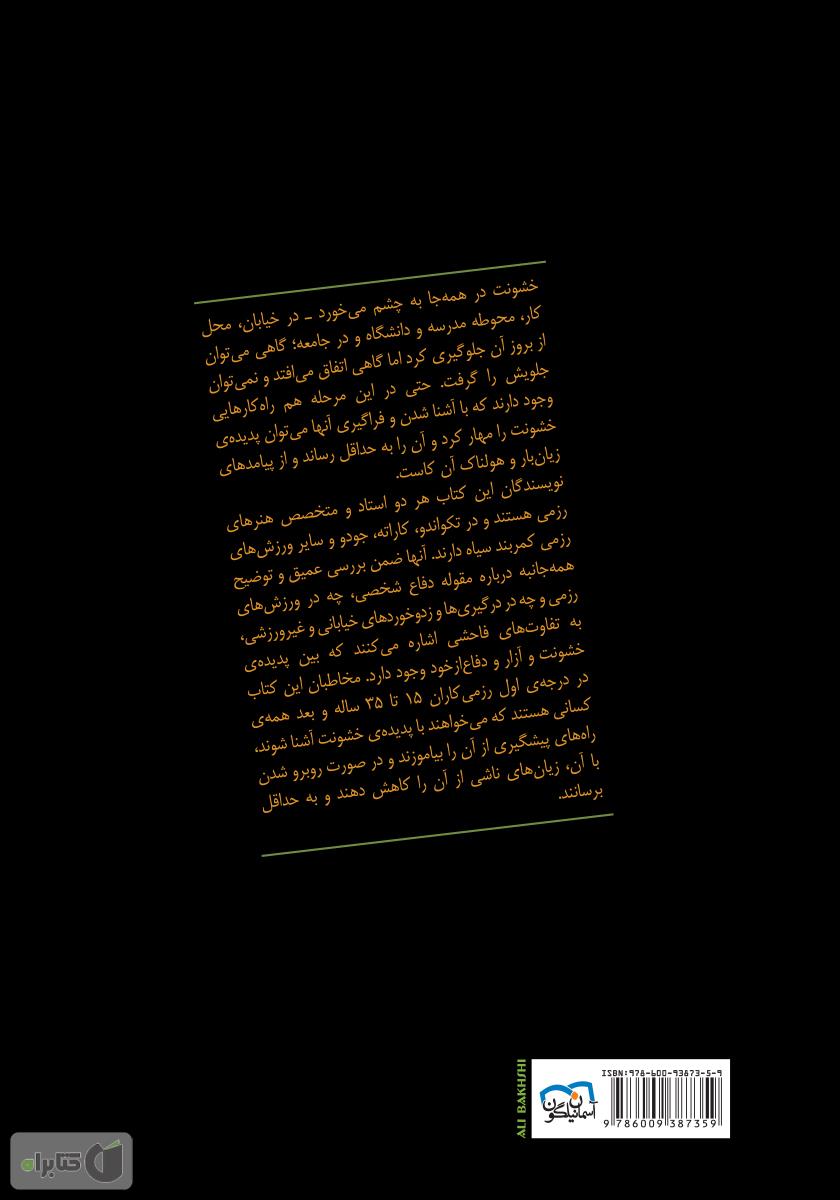 خشونت در همه‌جا به چشم می‌خورد ـ در خیابان، محل
کار، محوطه مدرسه و دانشگاه و در جامعه؛ گاهی می‌توان
از بروز آن جلوگیری کرد اما گاهی اتفاق می‌افتد و نمی‌توان
جلویش را گرفت. حتی در این مرحله هم راه‌کارهایی
وجود دارند که با آشنا شدن و فراگیری آنها می‌توان پدیده‌ی
خشونت را مهار کرد و آن را به حداقل رساند و از پیامدهای
زیان‌بار و هولناک آن کاست.
نویسندگان این کتاب هر دو استاد و متخصص هنرهای
رزمی هستند و در تکواندو، کاراته، جودو و سایر ورزش‌های
رزمی کمربند سیاه دارند. آنها ضمن بررسی عمیق و توضیح
همه‌جانبه درباره مقوله دفاع شخصی، چه در ورزش‌های
رزمی و چه در درگیری‌ها و زدوخوردهای خیابانی و غیرورزشی،
به تفاوت‌های فاحشی اشاره می‌کنند که بین پدیده‌ی
خشونت و آزار و دفاع‌ازخود وجود دارد. مخاطبان این کتاب
در درجه‌ی اول رزمی‌کاران ۱۵ تا ۳۵ ساله و بعد همه‌ی
کسانی هستند که می‌خواهند با پدیده‌ی خشونت آشنا شوند،
راه‌های پیشگیری از آن را بیاموزند و در صورت روبرو شدن
با آن، زیان‌های ناشی از آن را کاهش دهند و به حداقل
برسانند.
ALI BAKHSHI
آسمان نیلگون
ISBN: 978-600-93873-5-9
9 786009 387359
کتابراه